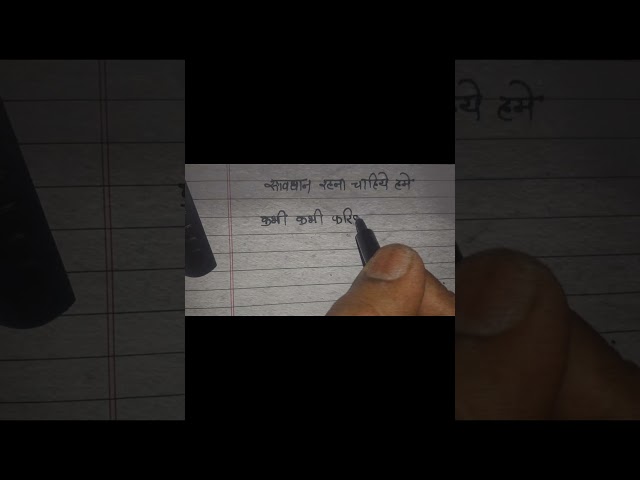 सावधान रहना चाहिये हमे
कभी कभी फरि